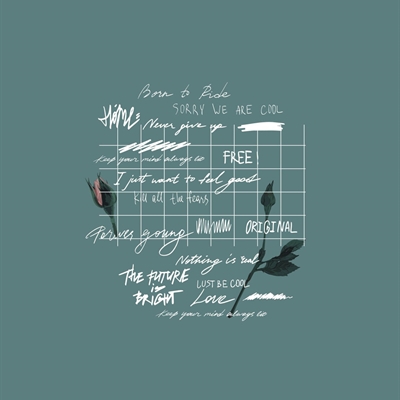 Born to Ride
SORRY WE ARE COOL
Never give up
Keep your mind always
FREE!
I just want to feel good
Kill all the fears
Forever young
ORIGINAL
Nothing is real
THE FUTURE
is
BRIGHT
LUST BE COOL
Love
Keep your mind always